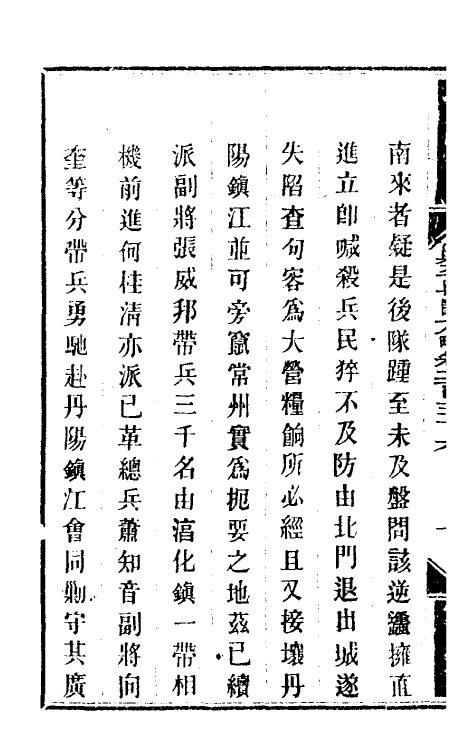 南來者疑是後隊踵至未及盤問該逆蠭擁直
進立卽喊殺兵民猝不及防由北門退出城遂
失陷查句容爲大營糧餉所必經且又接壤丹
陽鎭江並可旁竄常州實爲扼要之地茲已續
派副將張威邦帶兵三千名由淳化鎭一帶相
機前進何桂淸亦派已革總兵蕭知音副將向
奎等分帶兵勇馳赴丹陽鎭江會同勦守其廣